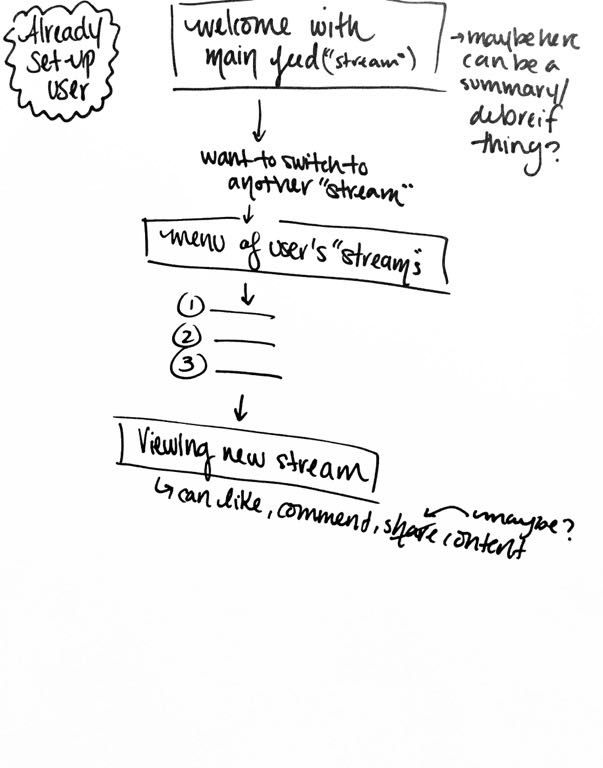 Already
set-up
user
welcome with
main feed ("stream")
→ maybe here
can be a
summary/
debreif
thing?
want to switch to
another "stream"
menu of user's "streams"
①
②
③
Viewing new stream
↳ can like, commend, share content
maybe?